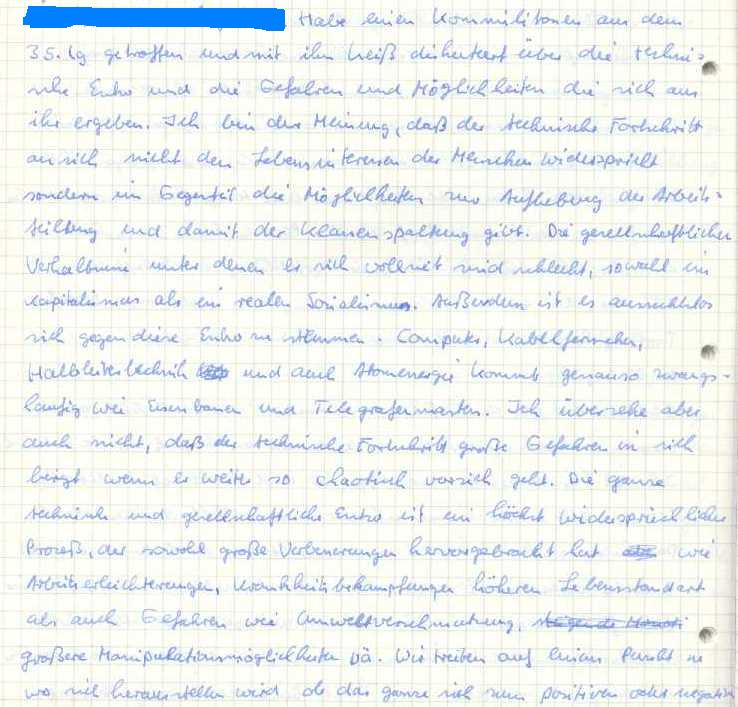 Habe einen Kommilitonen aus dem
35. Lg getroffen und mit ihm heiß diskutiert über die techni-
sche Entw und die Gefahren und Möglichkeiten die sich aus
ihr ergeben. Ich bin der Meinung, daß der technische Fortschritt
ansich nicht den Lebensinteressen der Menschen widerspricht
sondern im Gegenteil die Möglichkeiten zur Aufhebung der Arbeits-
teilung und damit der Klassenspaltung gibt. Die gesellschaftlichen
Verhältnisse unter denen er sich vollzieht sind schlecht, sowohl im
Kapitalismus als im realen Sozialismus. Außerdem ist es aussichtslos
sich gegen diese Entw zu stemmen. Computer, Kabelfernsehen,
Halbleitertechnik und auch Atomenergie kommt genauso zwangs-
läufig wie Eisenbanen und Telegrafenmasten. Ich übersehe aber
auch nicht, daß der technische Fortschritt große Gefahren in sich
birgt wenn er weiter so chaotisch vorsich geht. Die ganze
technisch und gesellschaftliche Entw ist ein höchst widersprüchlicher
Prozeß, der sowohl große Verbesserungen hervorgebracht hat wie
Arbeitserleichterungen, Krankheitsbekämpfungen höheren Lebensstandart
als auch Gefahren wie Umweltverschmutzung,
größere Manipulationsmöglichkeiten uä. Wir treiben auf einen Punkt zu
wo sich herausstellen wird, ob das ganze sich zum positiven oder negativen